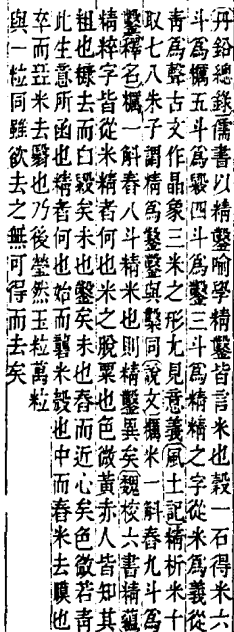 丹鉛總錄儒書以精鑿喻學精鑿皆言米也穀一石得米六
斗爲糲五斗爲毇四斗爲鑿三斗爲精精之字從米爲義從
靑爲聲古文作晶象三米之形尢見意義風土記精析米十
取七八朱子謂精爲鑿鑿與糳同說文糲米一斛舂九斗爲
鑿釋名糲一斛舂八斗精米也則精鑿異矣魏校六書精蘊
精粹字皆從米精者何也米之脫粟也色微黃赤人皆知其
粗也糠去而曰毇矣未也鑿矣未也舂而近心矣色微若靑
此生意所函也精者何也始而礱米殼也中而舂米去膜也
卒而亞米去翳也乃後瑩然玉粒萬粒
與一粒同雖欲去之無可得而去矣